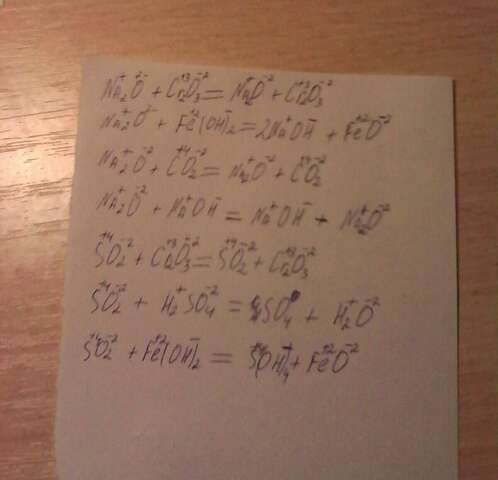 Na₂⁺O⁻ + Cr₂⁺³O₃⁻² = Na₂⁺O⁻² + Cr₂⁺³O₃⁻²
Na₂⁺O⁻ + Fe⁺²(OH)₂⁻ = 2Na⁺OH⁻ + Fe⁺²O⁻²
Na₂⁺O⁻² + C⁺⁴O₂⁻² = Na₂⁺O⁻² + C⁺⁴O₂⁻²
Na₂⁺O⁻² + Na⁺OH⁻ = Na⁺OH⁻ + Na₂⁺O⁻²
S⁺⁴O₂⁻² + Cr₂⁺³O₃⁻² = S⁺⁴O₂⁻² + Cr₂⁺³O₃⁻²
S⁺⁴O₂⁻² + H₂⁺SO₄⁻² = SO₄ + H₂⁺O⁻²
S⁺⁴O₂⁻² + Fe⁺²(OH)₂⁻ = S⁺⁴(OH)₄⁻ + Fe⁺²O⁻²